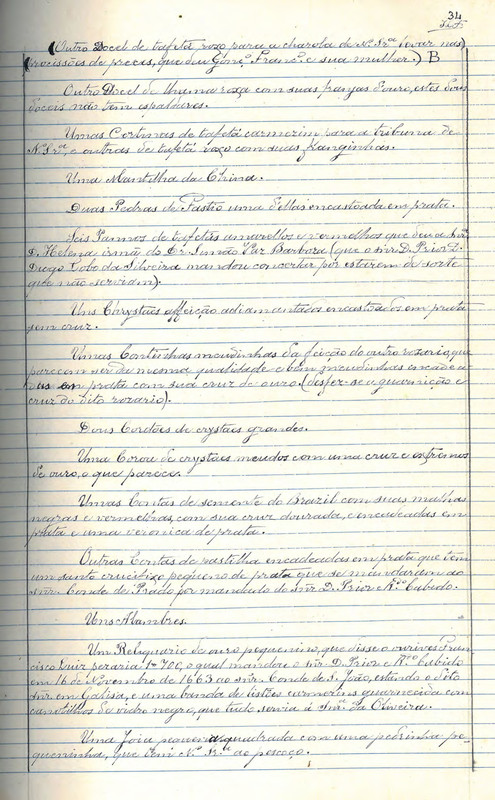 34
(Outro Docel de tafetá roxo para a charola de N. Srª levar nas)
procissões de preces, que deu Gonç.º Franc.º e sua mulher.) B
Outro Docel de lhama roxa com suas franjas d'ouro, estes dous
doceis não tem espaldares.
Umas Cortinas de tafetá carmezim para a tribuna de
N. Srª, e outras de tafetá roxo com suas franginhas.
Uma Mantilha da China.
Duas Pedras de Pastio uma dellas encastoada em prata.
Seis Pannos de tafetás amarellos e vermelhos que deu a Snrª
D. Helena irmã do Dr. Simão Vaz Barboza (que o snr. D. Prior D.
Diogo Lobo da Silveira mandou concertar por estarem de sorte
que não serviam).
Uns Chrystaes affeição adiamantados encastoados em prata
sem cruz.
Umas Continhas meudinhas da feição do outro rozario, que
parecem ser da mesma qualidade e bem meudinhas encadea-
das em prata com sua cruz de ouro. (desfez-se a guarnição e
cruz do dito rozario).
Dous Cordões de crystaes grandes.
Uma Coroa de crystaes meudos com uma cruz e extremos
de ouro, o que parece.
Umas Contas de semente do Brazil com suas malhas
negras e vermelhas, com sua cruz dourada, e encadeadas em
prata e uma veronica de prata.
Outras Contas de pastilha encadeadas em prata que tem
um santo crucifixo pequeno de prata que se mandaram ao
snr. Conde de Prado por mandado do Snr. D. Prior e R.do Cabido.
Uns Alambres.
Um Reliquario de ouro pequenino, que disse o ourives Fran-
cisco Luiz pezaria 1$700, o qual mandou o snr. D. Prior e R.do Cabido
em 16 de Novembro de 1663 ao snr. Conde de S. João, estando o dito
snr. em Galisa, e uma banda de listões carmezins guarnecida com
canotilhos de vidro negro, que tudo servia á Snrª da Oliveira.
Uma Joia pequena quadrada com uma pedrinha pe-
queninha, que tem N. Srª ao pescoço.